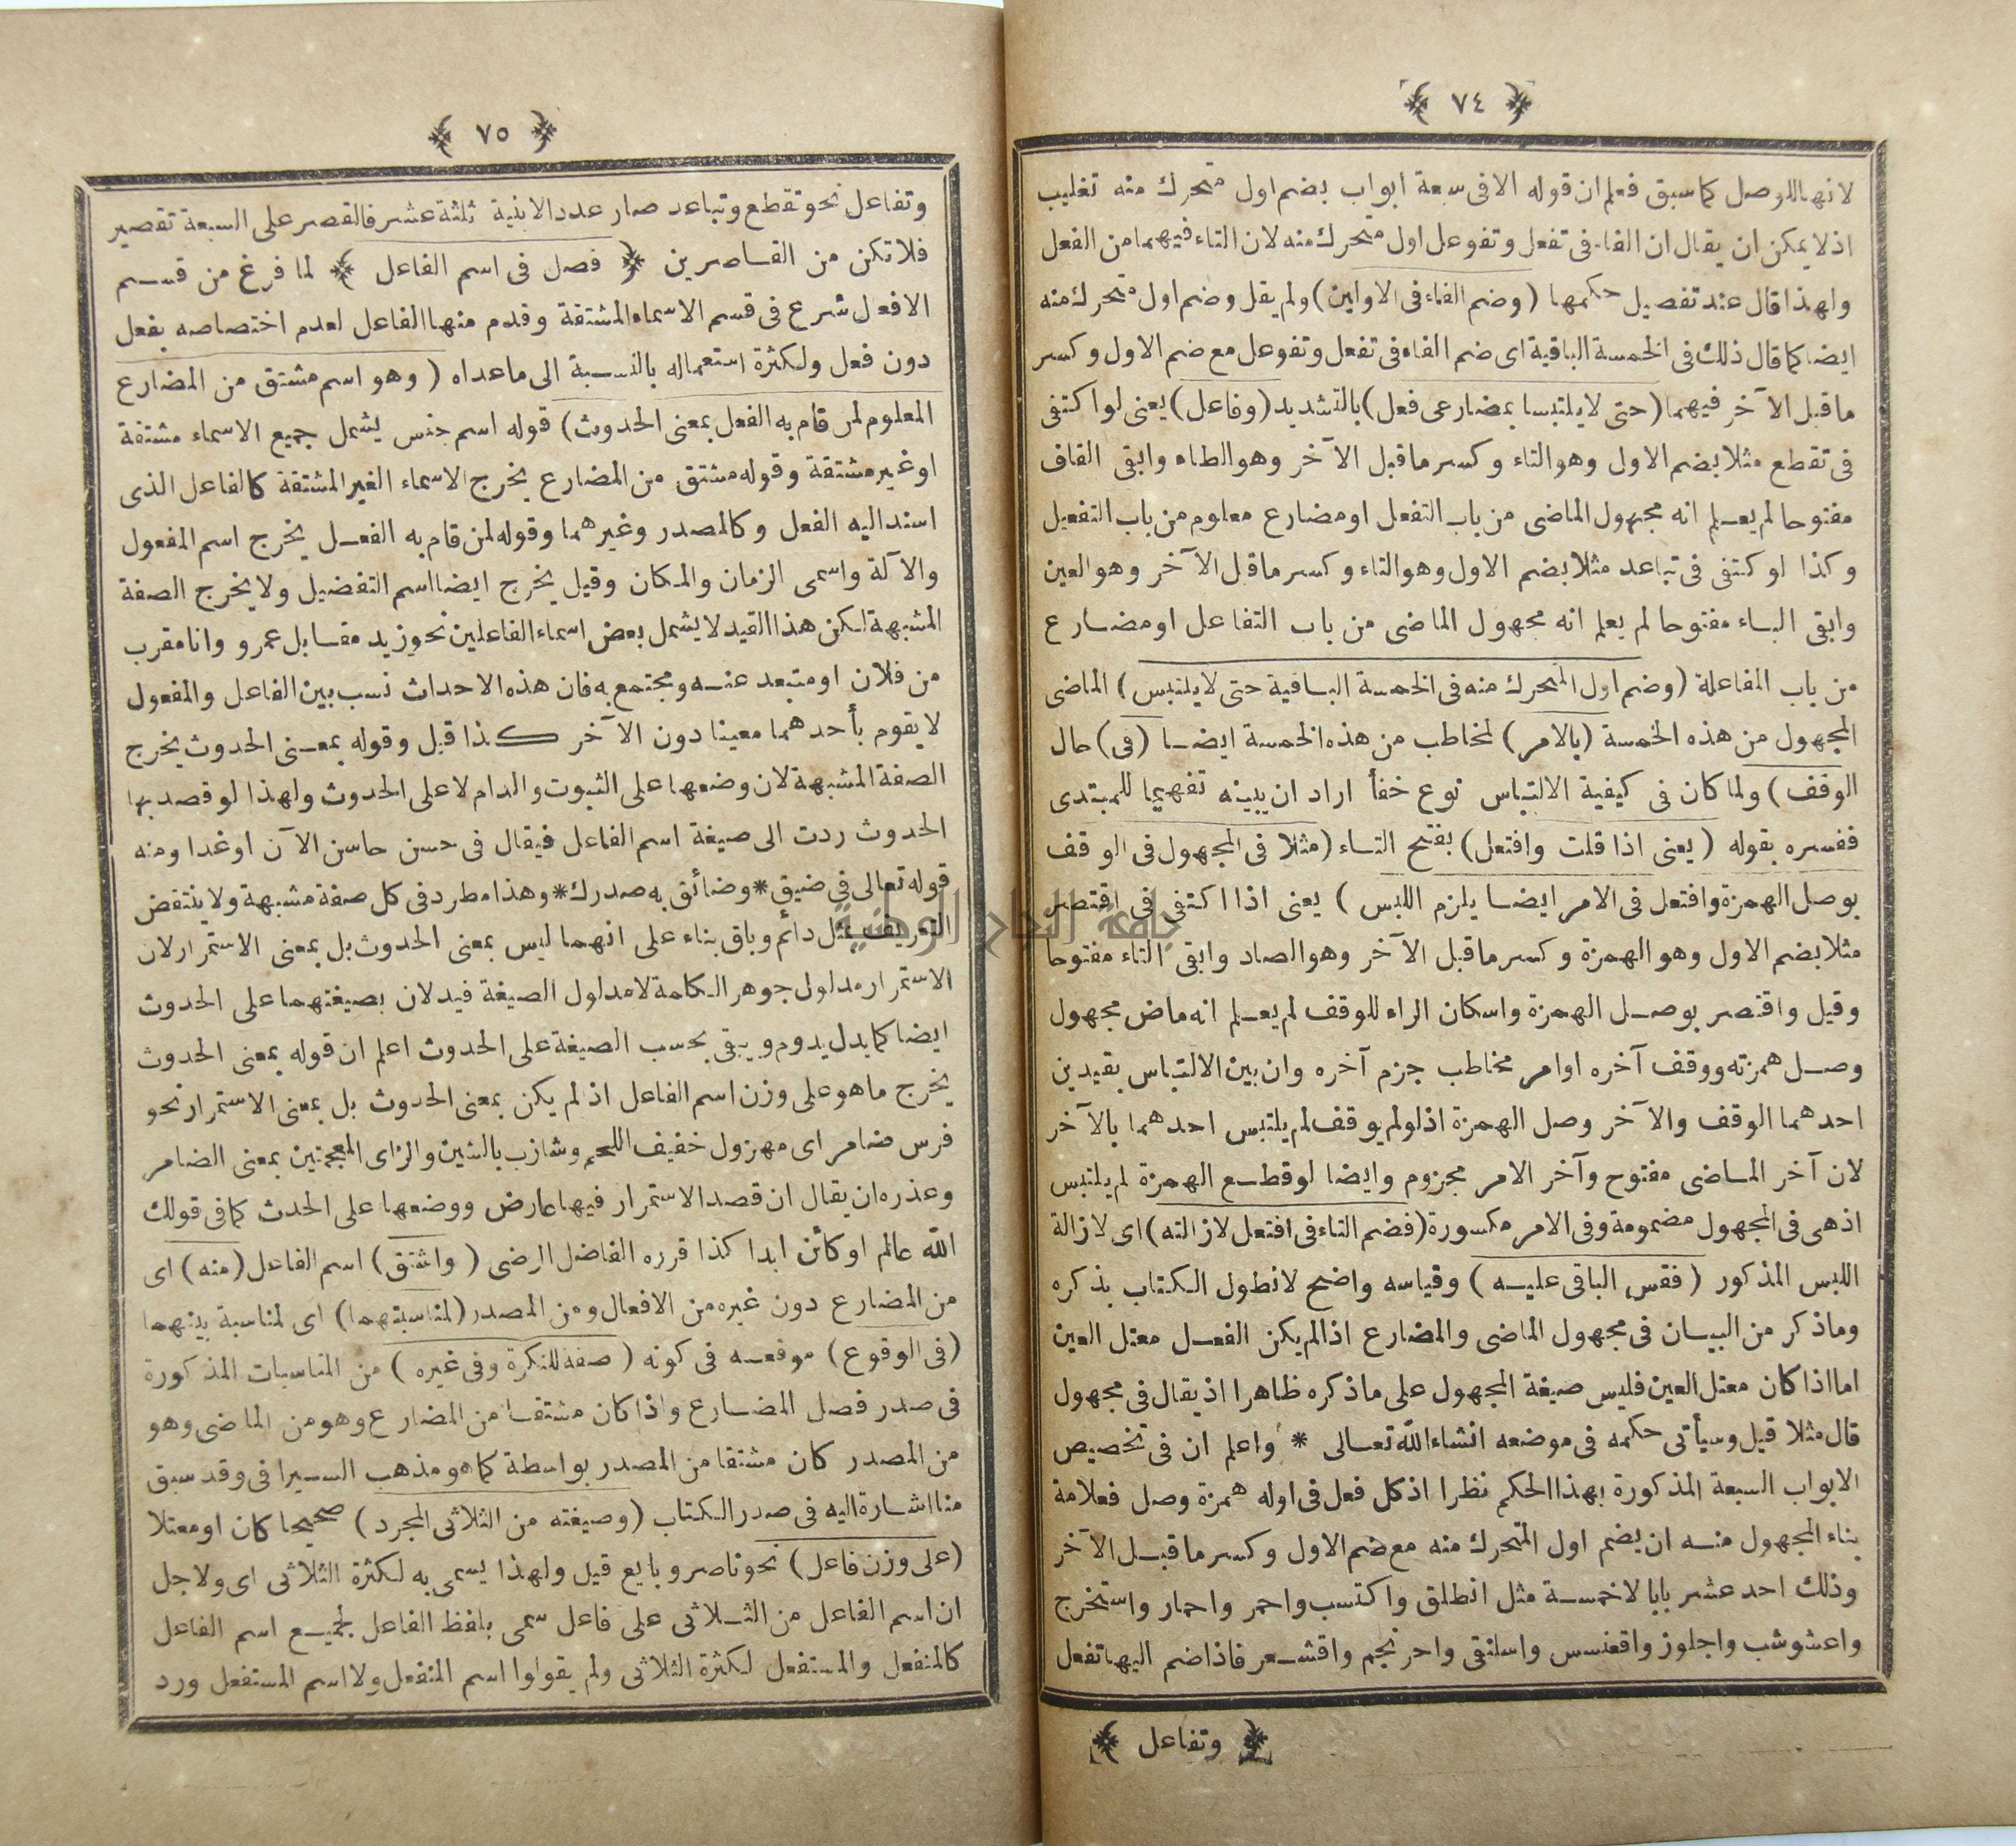 ﴿ ٧٤ ﴾
لانها للوصل كما سبق فعلم ان قوله الا فى سبعة ابواب بضم اول متحرك منه تغليب
اذ لا يمكن ان يقال ان الفاء فى تفعل وتفوعل اول متحرك منه لان التاء فيهما من الفعل
ولهذا قال عند تفصيل حكمها (وضم الفاء فى الاولين) ولم يقل وضم اول متحرك منه
ايضا كما قال ذلك فى الخمسة الباقية اى ضم الفاء فى تفعل وتفوعل مع ضم الاول وكسر
ما قبل الآخر فيهما (حتى لا يلتبسا بمضارعى فعل) بالتشديد (وفاعل) يعنى لو اكتفى
فى تقطع مثلا بضم الاول وهو التاء وكسر ما قبل الآخر وهو الطاء وابقى القاف
مفتوحا لم يعلم انه مجهول الماضى من باب التفعل او مضارع معلوم من باب التفعيل
وكذا لو كتفى فى تباعد مثلا بضم الاول وهو التاء وكسر ما قبل الآخر وهو العين
وابقى الباء مفتوحا لم يعلم انه مجهول الماضى من باب التفاعل او مضارع
من باب المفاعلة (وضم اول المتحرك منه فى الخمسة الباقية حتى لا يلتبس) الماضى
المجهول من هذه الخمسة (بالامر) لمخاطب من هذه الخمسة ايضا (فى) حال
الوقف) ولما كان فى كيفية الالتباس نوع خفأ اراد ان يبينه تفهيما للمبتدى
ففسره بقوله (يعنى اذا قلت وافتعل) بفتح التاء (مثلا فى المجهول فى الوقف
بوصل الهمزة وافتعل فى الامر ايضا يلزم اللبس) يعنى اذا اكتفى فى اقتصر
مثلا بضم الاول وهو الهمزة وكسر ما قبل الآخر وهو الصاد وابقى التاء مفتوحا
وقيل واقتصر بوصل الهمزة واسكان الراء للوقف لم يعلم انه ماض مجهول
وصل همزته ووقف آخره او امر مخاطب جزم آخره وان بين الالتباس بقيدين
احدهما الوقف والآخر وصل الهمزة اذ لو لم يوقف لم يلتبس احدهما بالآخر
لان آخر الماضى مفتوح وآخر الامر مجزوم وايضا لو قطع الهمزة لم يلتبس
اذ هى فى المجهول مضمومة وفى الامر مكسورة (فضم التاء فى افتعل لازالته) اى لازالة
اللبس المذكور (فقس الباقى عليه) وقياسه واضح لا نطول الكتاب بذكره
وما ذكر من البيان فى مجهول الماضى والمضارع اذا لم يكن الفعل معتل العين
اما اذا كان معتل العين فليس صيغة المجهول على ما ذكره ظاهرا اذ يقال فى مجهول
قال مثلا قيل وسيأتى حكمه فى موضعه انشاء الله تعالى * واعلم ان فى تخصيص
الابواب السبعة المذكورة بهذا الحكم نظرا اذ كل فعل فى اوله همزة وصل فعلامة
بناء المجهول منه ان يضم اول المتحرك منه مع ضم الاول وكسر ما قبل الآخر
وذلك احد عشر بابا لا خمسة مثل انطلق واكتسب واحمر واحمار واستخرج
واعشوشب واجلوز واقعنسس واسلنقى واحرنجم واقشعر فاذا ضم اليها تفعل
﴿ وتفاعل ﴾
﴿ ٧٥ ﴾
وتفاعل نحو تقطع وتباعد صار عدد الابنية ثلثة عشر فالقصر على السبعة تقصير
فلا تكن من القاصرين ﴿ فصل فى اسم الفاعل ﴾ لما فرغ من قسم
الافعل شرع فى قسم الاسماء المشتقة وقدم منها الفاعل لعدم اختصاصه بفعل
دون فعل ولكثرة استعماله بالنسبة الى ما عداه (وهو اسم مشتق من المضارع
المعلوم لمن قام به الفعل بمعنى الحدوث) قوله اسم جنس يشمل جميع الاسماء مشتقة
او غير مشتقة وقوله مشتق من المضارع يخرج الاسماء الغير المشتقة كالفاعل الذى
اسند اليه الفعل وكالمصدر وغيرهما وقوله لمن قام به الفعل يخرج اسم المفعول
والآلة واسمى الزمان والمكان وقيل يخرج ايضا اسم التفضيل ولا يخرج الصفة
المشبهة لكن هذا القيد لا يشمل بعض اسماء الفاعلين نحو زيد مقابل عمرو وانا مقرب
من فلان او متبعد عنه ومجتمع به فان هذه الاحداث نسب بين الفاعل والمفعول
لا يقوم بأحدهما معينا دون الآخر كذا قيل وقوله بمعنى الحدوث يخرج
الصفة المشبهة لان وضعها على الثبوت والدام لا على الحدوث ولهذا لو قصد بها
الحدوث ردت الى صيغة اسم الفاعل فيقال فى حسن حاسن الآن او غدا ومنه
قوله تعالى فى ضيق * وضائق به صدرك * وهذا مطرد فى كل صفة مشبهة ولا ينتقض
التعريف بمثل دائم وباق بناء على انهما ليس بمعنى الحدوث بل بمعنى الاستمرار لان
الاستمرار مدلول جوهر الكلمة لا مدلول الصيغة فيدلان بصيغتهما على الحدوث
ايضا كما يدل يدوم ويبقى بحسب الصيغة على الحدوث اعلم ان قوله بمعنى الحدوث
يخرج ما هو على وزن اسم الفاعل اذ لم يكن بمعنى الحدوث بل بمعنى الاستمرار نحو
فرس ضامر اى مهزول خفيف اللحم وشازب بالشين والزاى المعجمتين بمعنى الضامر
وعذره ان يقال ان قصد الاستمرار فيها عارض ووضعها على الحدث كما فى قولك
الله عالم او كائن ابدا كذا قرره الفاضل الرضى (واشتق) اسم الفاعل (منه) اى
من المضارع دون غيره من الافعال ومن المصدر (لمناسبتهما) اى لمناسبة بينهما
(فى الوقوع) موقعه فى كونه (صفة للنكرة وفى غيره) من المناسبات المذكورة
فى صدر فصل المضارع واذا كان مشتقا من المضارع وهو من الماضى وهو
من المصدر كان مشتقا من المصدر بواسطة كما هو مذهب السيرافى وقد سبق
منا اشارة اليه فى صدر الكتاب (وصيغته من الثلاثى المجرد) صحيحا كان او معتلا
(على وزن فاعل) نحو ناصر وبايع قيل ولهذا يسمى به لكثرة الثلاثى اى ولاجل
ان اسم الفاعل من الثلاثى على فاعل سمى بلفظ الفاعل لجميع اسم الفاعل
كالمنفعل والمستفعل لكثرة الثلاثى ولم يقولوا اسم المنفعل ولا اسم المستفعل ورد
جامعة النجاح الوطنية